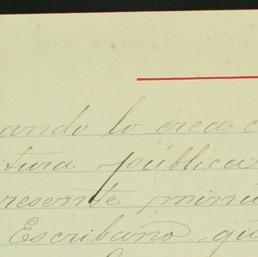 ando lo crea c
tura pública
resente minu
Escribano, qu